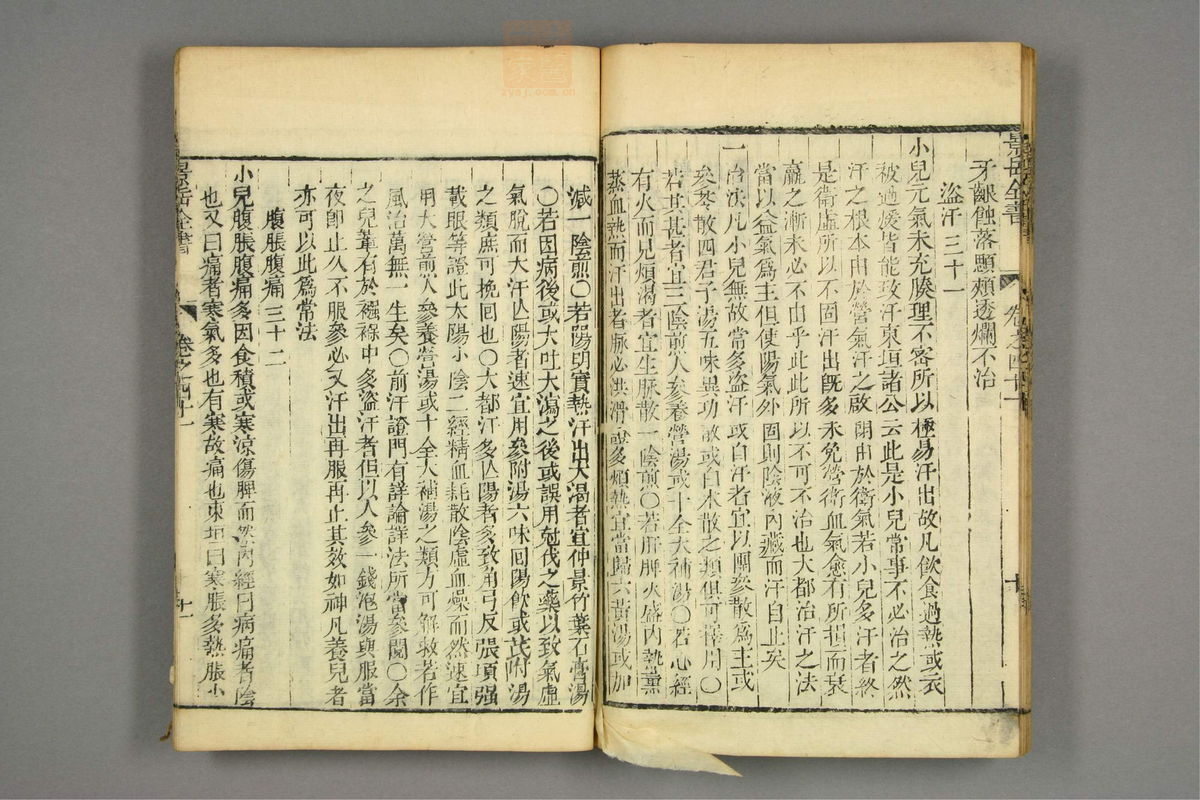 景岳全書 卷之四十一 十
牙齦蝕落顋頰透爛不治
盜汗 三十一
小兒元氣未充腠理不密所以極易汗出故凡飲食過熱或衣
被過煖皆能致汗東垣諸公云此是小兒常事不必治之然
汗之根本由於營氣汗之啟閉由於衛氣若小兒多汗者終
是衛虛所以不固汗出既多未免營衛血氣愈有所損而衰
羸之漸未必不由乎此此所以不可不治也大都治汗之法
當以益氣爲主但使陽氣外固則陰液內藏而汗自止矣
一治法凡小兒無故常多盜汗或自汗者宜以團參散爲主或
參苓散四君子湯五味異功散或白朮散之類俱可擇用○
若其甚者宜三陰煎人參養營湯或十全大補湯○若心經
有火而見煩渴者宜生脈散一陰煎○若肝脾火盛內熱薰
蒸血熱而汗出者脈必洪滑證多煩熱宜當歸六黃湯或加
減一陰煎○若陽明實熱汗出大渴者宜仲景竹葉石膏湯
○若因病後或大吐大瀉之後或誤用尅伐之藥以致氣虛
氣脫而大汗亾陽者速宜用參附湯六味回陽飲或芪附湯
之類庶可挽回也○大都汗多亾陽者多致角弓反張項强
戴眼等證此太陽少陰二經精血耗散陰虛血燥而然速宜
用大營煎人參養營湯或十全大補湯之類方可解救若作
風治萬無一生矣○前汗證門有詳論詳法所當參閱○余
之兒輩有於襁褓中多盜汗者但以人參一錢泡湯與服當
夜卽止久不服參必又汗出再服再止其效如神凡養兒者
亦可以此爲常法
腹脹腹痛 三十二
小兒腹脹腹痛多因食積或寒涼傷脾而然內經曰病痛者陰
也又曰痛者寒氣多也有寒故痛也東垣曰寒脹多熱脹少
景岳全書 卷之四十一 十一
zysj.com.cn